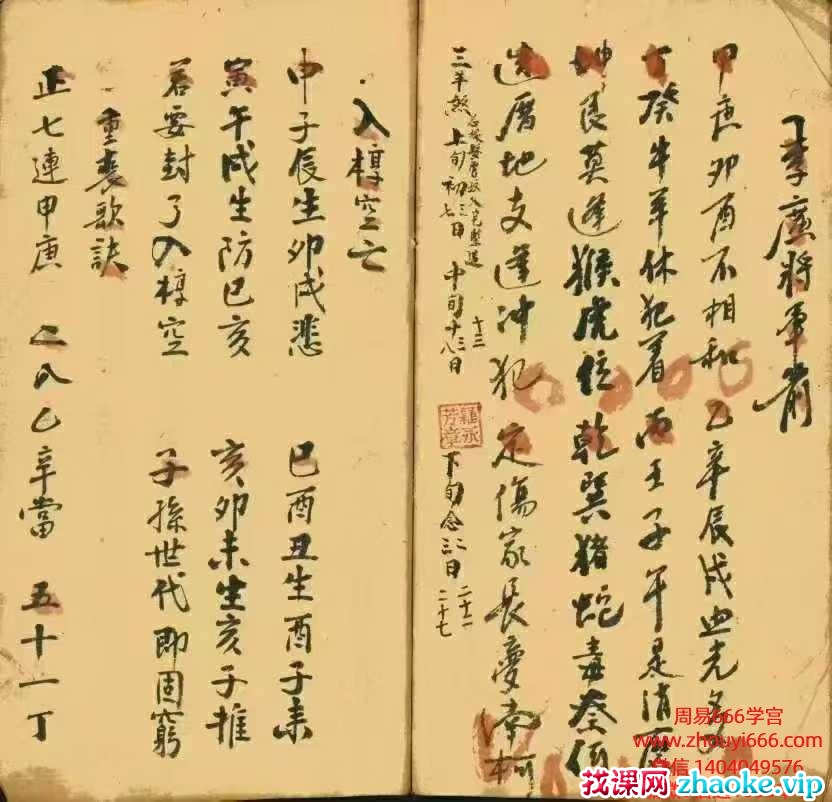 李廣將軍前
甲庚卯酉不相和 乙辛辰戌血光多
丁癸牛羊休犯着 丙壬子午是消磨
坤艮莫逢猴虎位 乾巽猪蛇毒
地支逢冲犯 定傷家長夢南柯
三羊煞 上旬初三七日 中旬十三十八日 下旬念二三日 二十一 二十七
入椁空亡
申子辰生卯戌悲 巳酉丑生酉子未
寅午戌生防巳亥 亥卯未生亥子推
若要封了入椁空 子孫世代即困窮
重喪歌訣
正七連甲庚 二八乙辛當 五十一丁
周易666学宫
www.zhouyi666.com
微信 1404049576
找课网zhaoke.vip